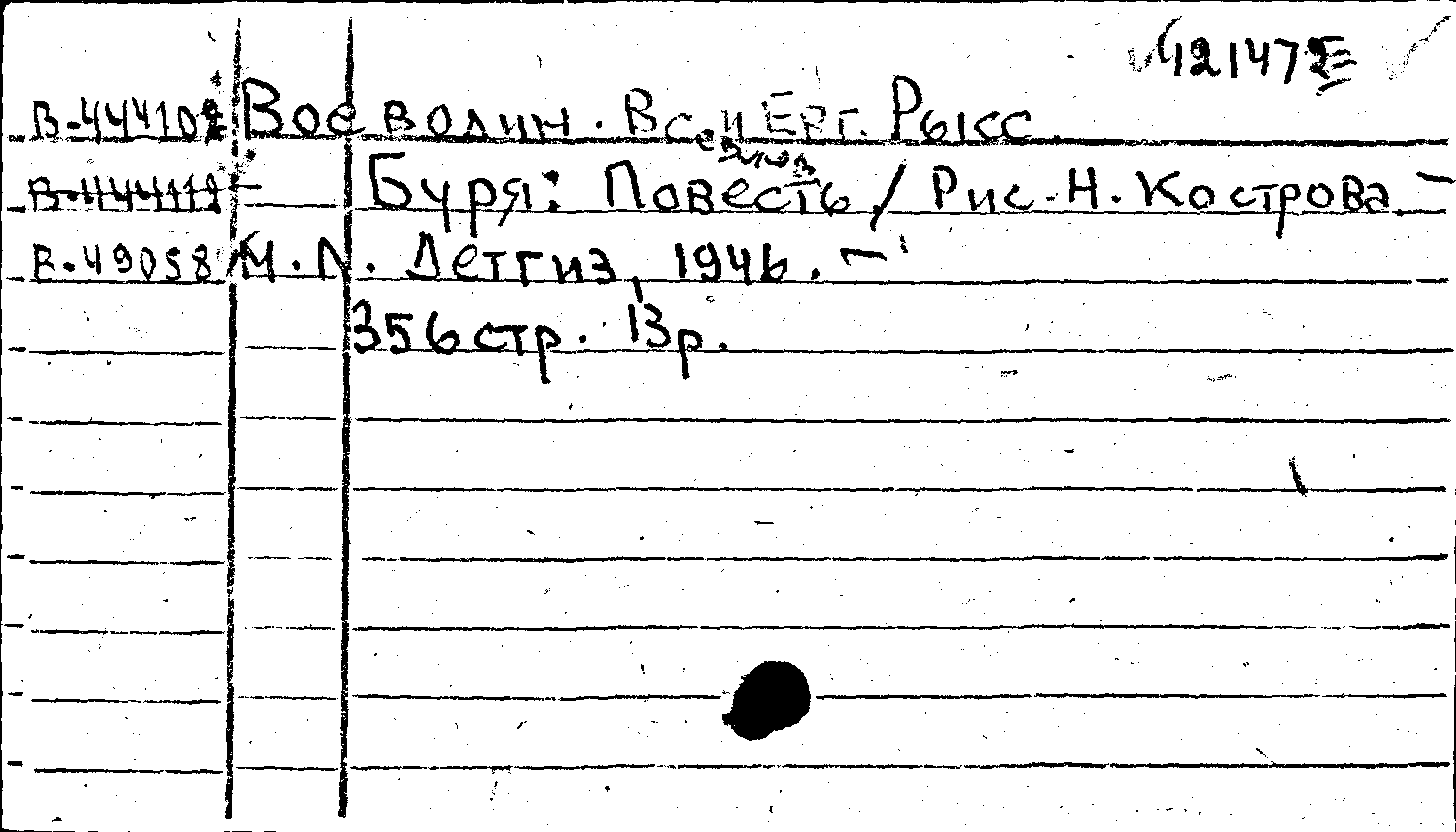 421472
В-444102 Воеволин. Всеи Евг. Рысс.
В-444112 Буря: Повесть / Рис. Н. Кострова. —
В-49058 М.Л. Детгиз, 1946. —
356 стр. 13 р.